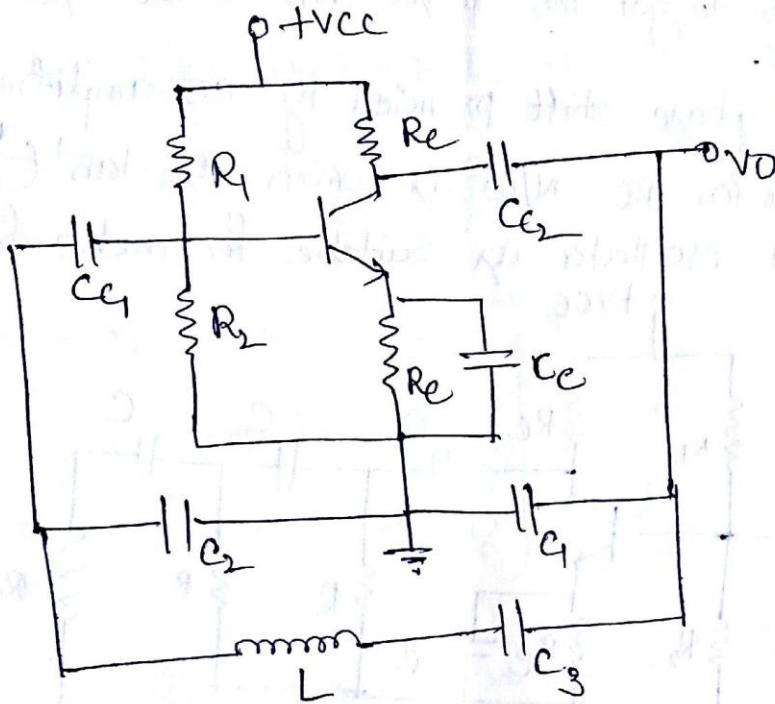 +VCC
R1
Rc
CC2
VO
CC1
R2
Re
Ce
C2
C1
L
C3